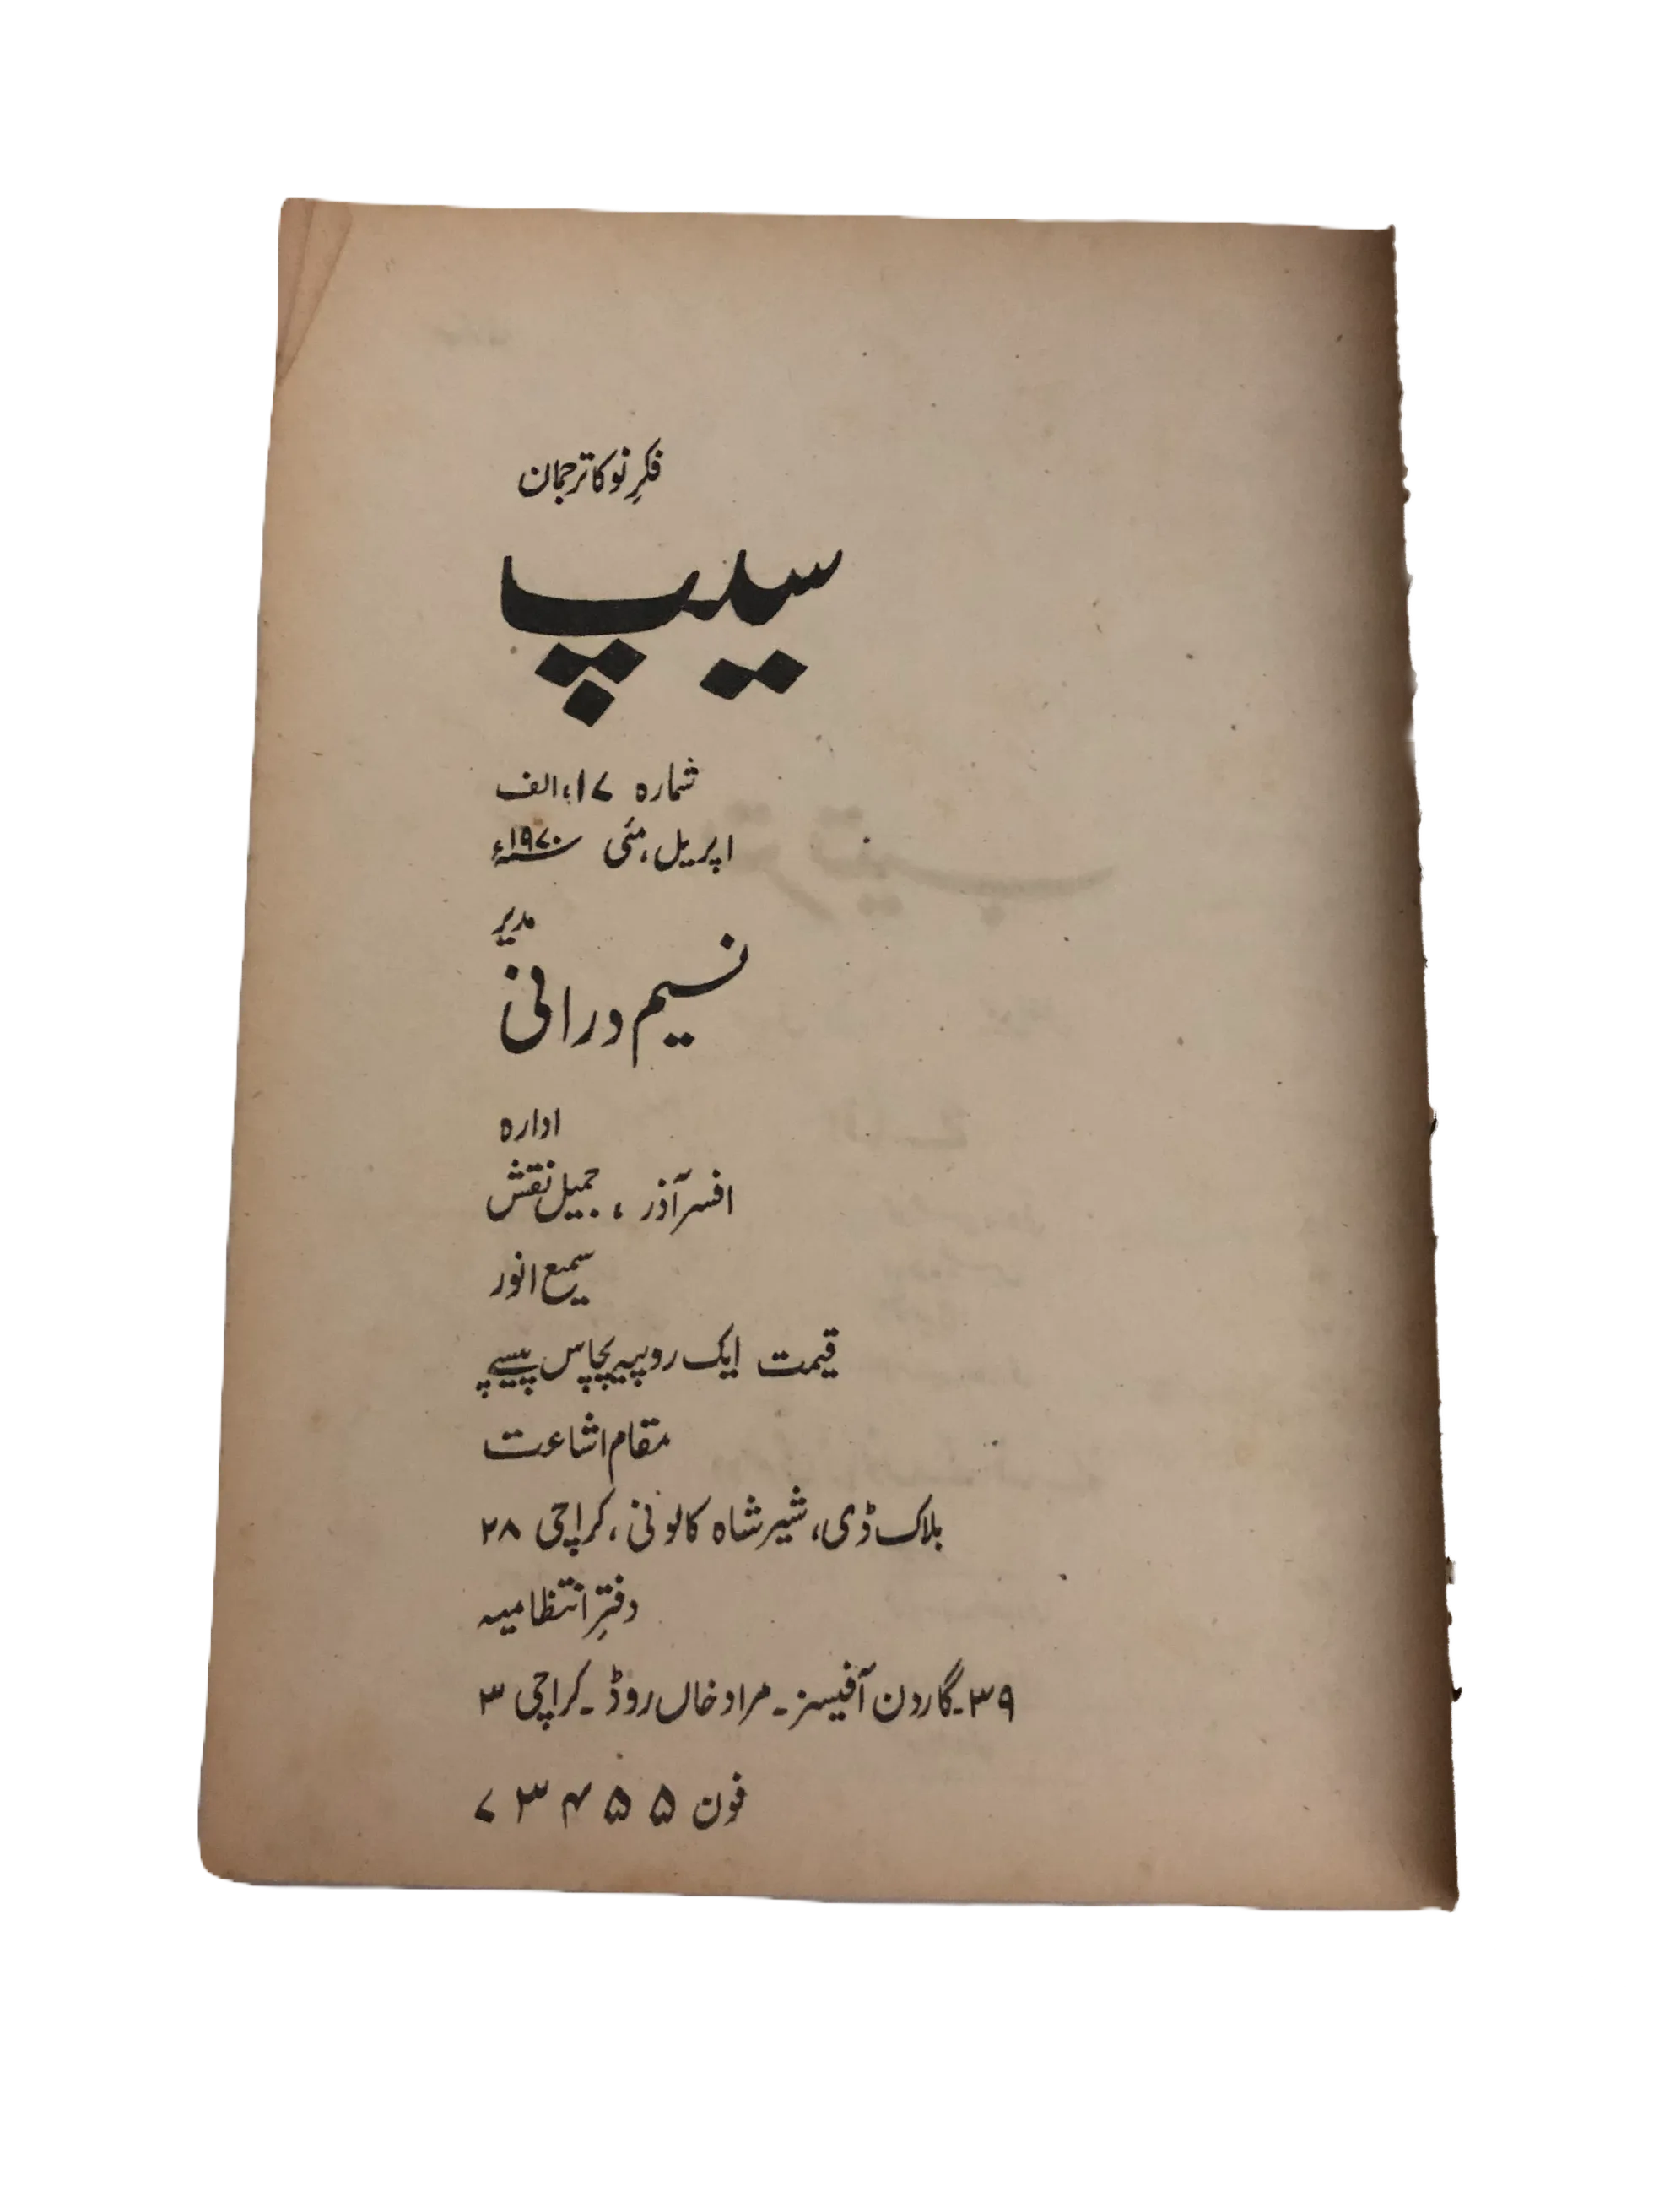 فکرِ نو کا ترجمان
سیپ
شمارہ ۱۷، الف
اپریل، مئی ۱۹۷۰ء
مدیر
نسیم درانی
ادارہ
افسر آذر ، جمیل نقش
سمیع انور
قیمت ایک روپیہ پچاس پیسے
مقام اشاعت
بلاک ڈی، شیر شاہ کالونی، کراچی ۲۸
دفترِ انتظامیہ
۳۹۔گارڈن آفیسز۔ مراد خاں روڈ۔ کراچی ۳
فون ۷۳۴۵۵